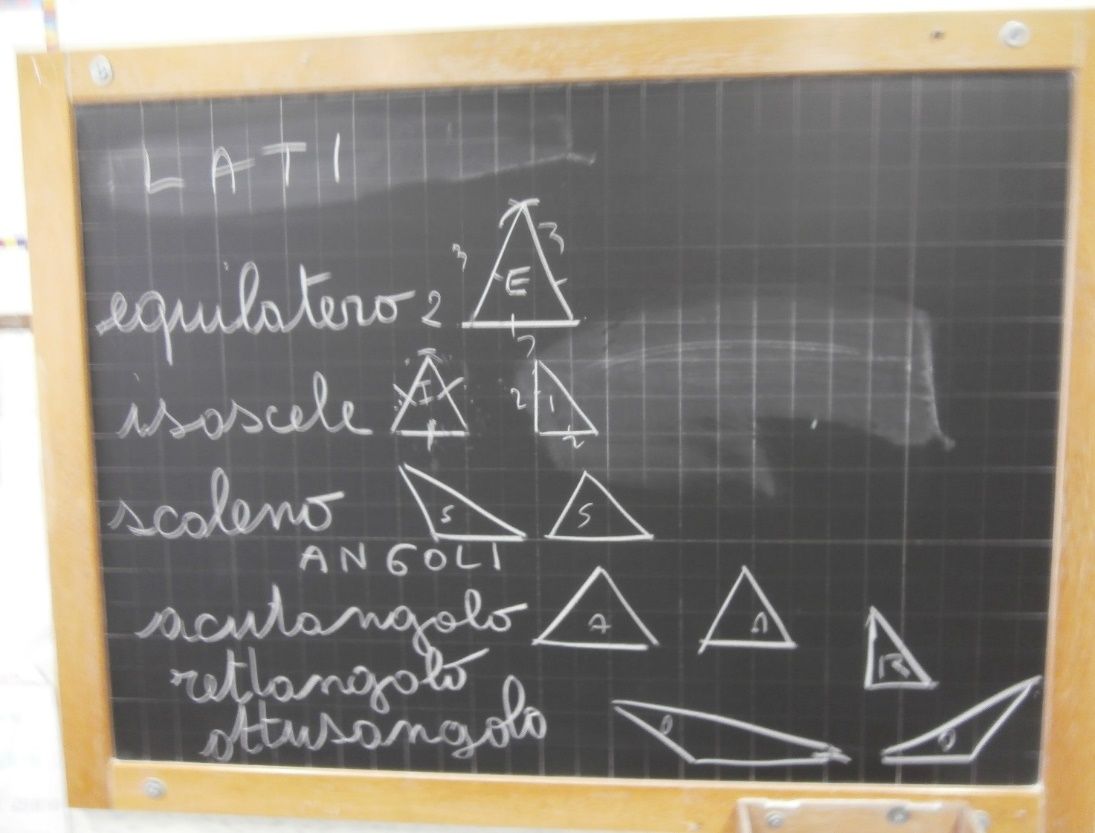 LATI
3 3
E
equilatero 2
isoscele I 2 1 2
scaleno S S
ANGOLI
acutangolo A A
rettangolo R
ottusangolo O O